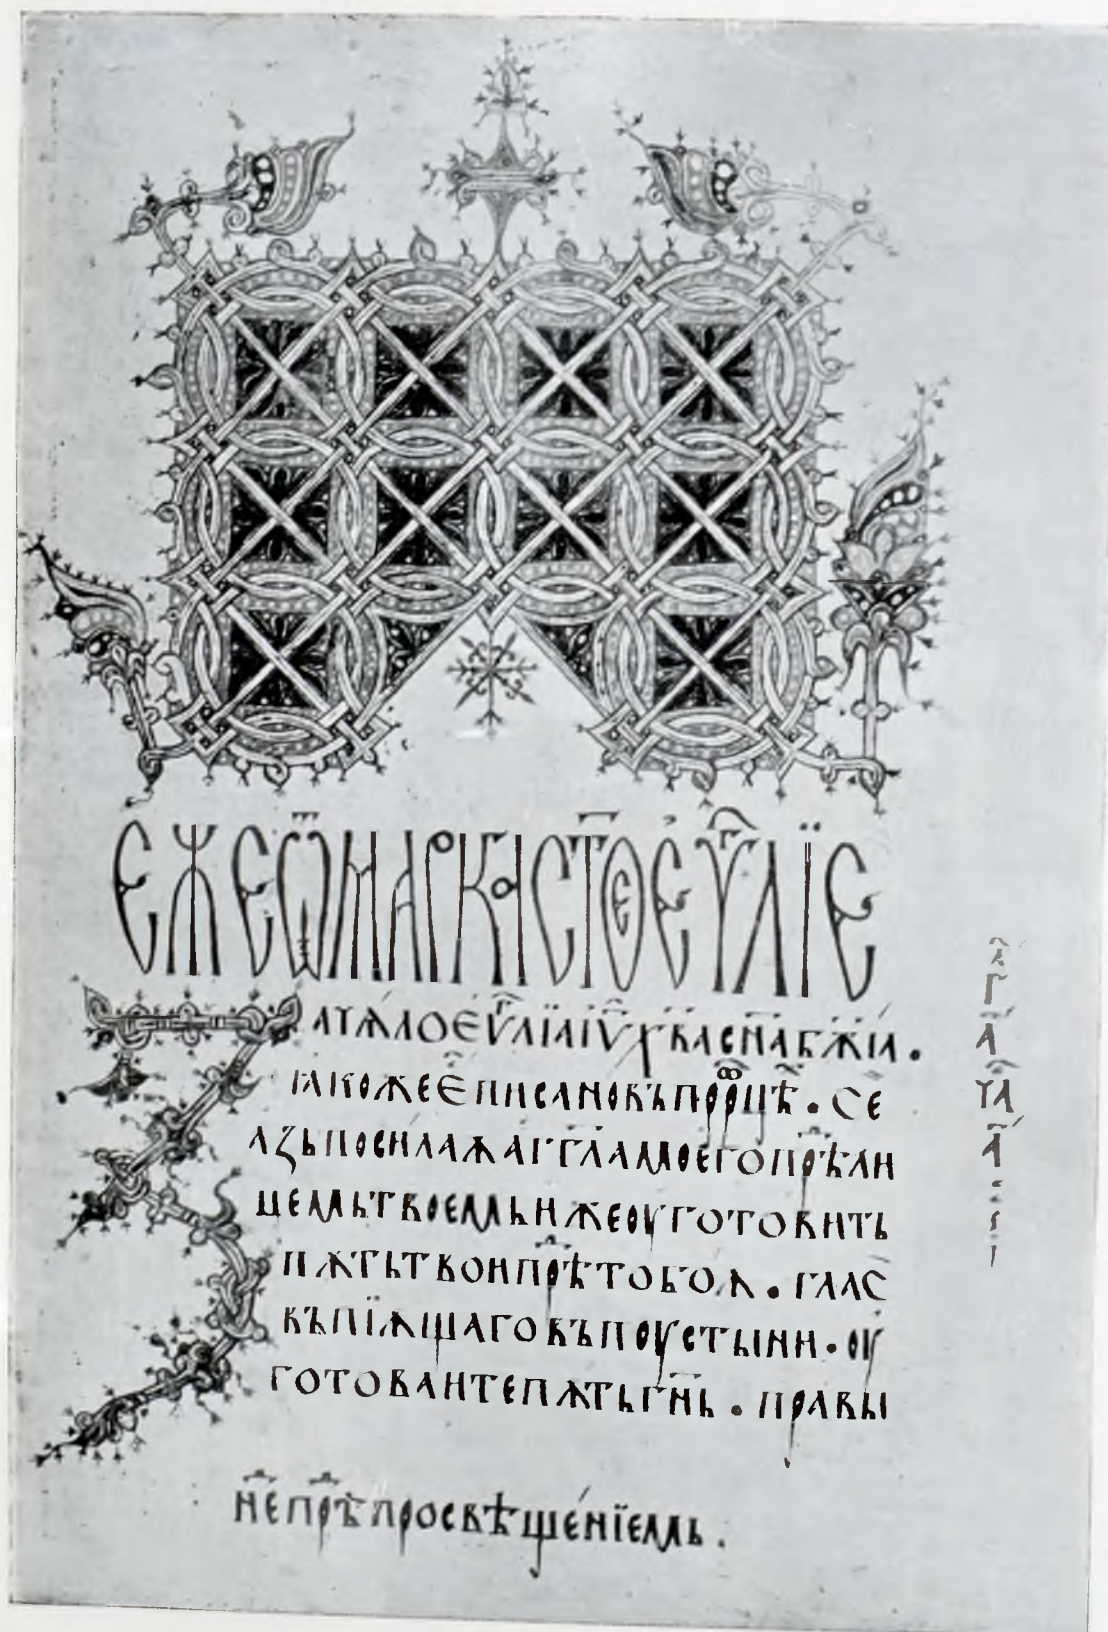 ЕЖЕ Ѿ МАРКА СТОЕ ЕѴЛІЕ
ЗАЧѦЛО ЕѴГЛІА ІѴ ХВА СНА БЖІА .
ꙖКОЖЕ Е ПИСАНО ВЪ ПРРОЦѢ . СЕ
АЗЬ ПОСИЛАѪ АГГЛА МОЕГО ПРѢ ЛИ
ЦЕМЬ ТВОЕМЬ ИЖЕ ОУГОТОВИТЬ
ПѪТЬ ТВОИ ПРѢ ТОБОѪ . ГЛАС
ВЪПЇѪЩАГО ВЪ ПОУСТЫНИ . ОУ
ГОТОВАИТЕ ПѪТЬ ГНЬ . ПРАВЫ
НЕ ПРѢ ПРОСВѢЩЕНЇЕМЬ .